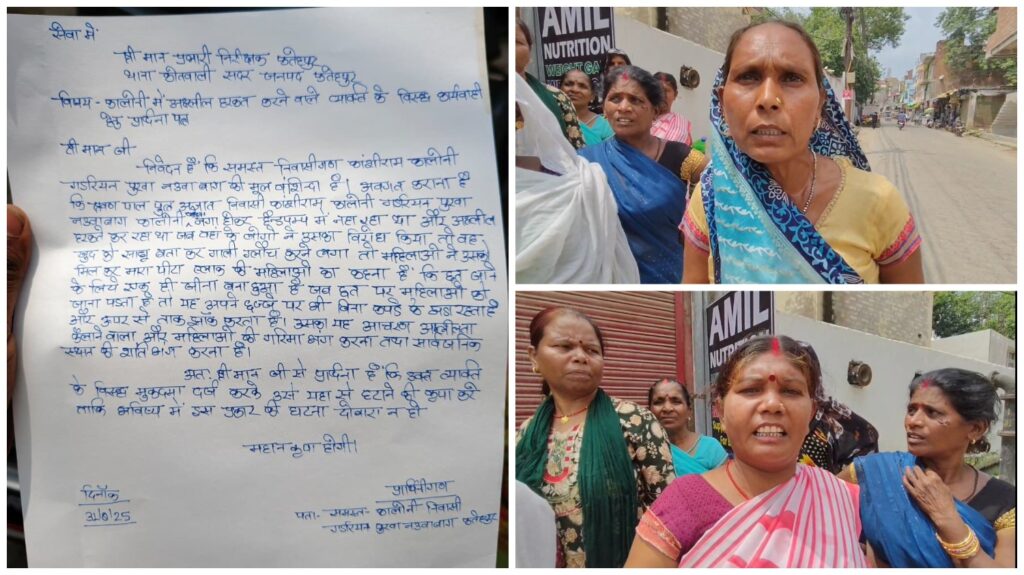 सेवा में
श्री मान प्रभारी निरीक्षक फतेहपुर
थाना कोतवाली सदर जनपद फतेहपुर
विषय - कालोनी में अश्लील हरकत करने वाले व्यक्ति के विरुद्ध कार्यवाही
हेतु प्रार्थना पत्र
श्री मान जी
निवेदन है कि समस्त निवासीगण कांशीराम कालोनी
गडरियन पुरवा नउवा बाग की मूल वाशिन्दा है। अवगत कराना है
कि पाल पुत्र अज्ञात निवासी कांशीराम कालोनी गडरियन पुरवा
नउवाबाग कालोनी में नंगा होकर हैन्डपम्प में नहा रहा था और अश्लील
हरकतें कर रहा था जब वहां के लोगों ने उसका विरोध किया तो वह
खुद को साझ बता कर गाली गलौच करने लगा तो महिलाओं ने उसको
मिल कर मारा पीटा ब्लाक की महिलाओं का कहना है कि छत जाने
के लिये एक ही जीना बना हुआ है जब छत पर महिलाओं को
जाना पडता है तो यह अपने दरवाजे पर भी बिना कपडे के खडा रहता है
और ऊपर से ताक झांक करता है। उसका यह आचरण अश्लीलता
फैलाने वाला और महिलाओं की गरिमा भंग करना तथा सार्वजनिक
स्थान की शांति भंग करना है।
अतः श्री मान जी से प्रार्थना है कि उक्त व्यक्ति
के विरुद्ध मुकदमा दर्ज करके उसे यहा से हटाने की कृपा करें
ताकि भविष्य में इस प्रकार की घटना दोबारा न हो
महान कृपा होगी।
दिनाँक
प्रार्थिनीगण
पता - समस्त कालोनी निवासी
गडरियन पुरवा नउवाबाग फतेहपुर
AMIL
NUTRITION
WEIGHT GA
AMIL
NUTRIT